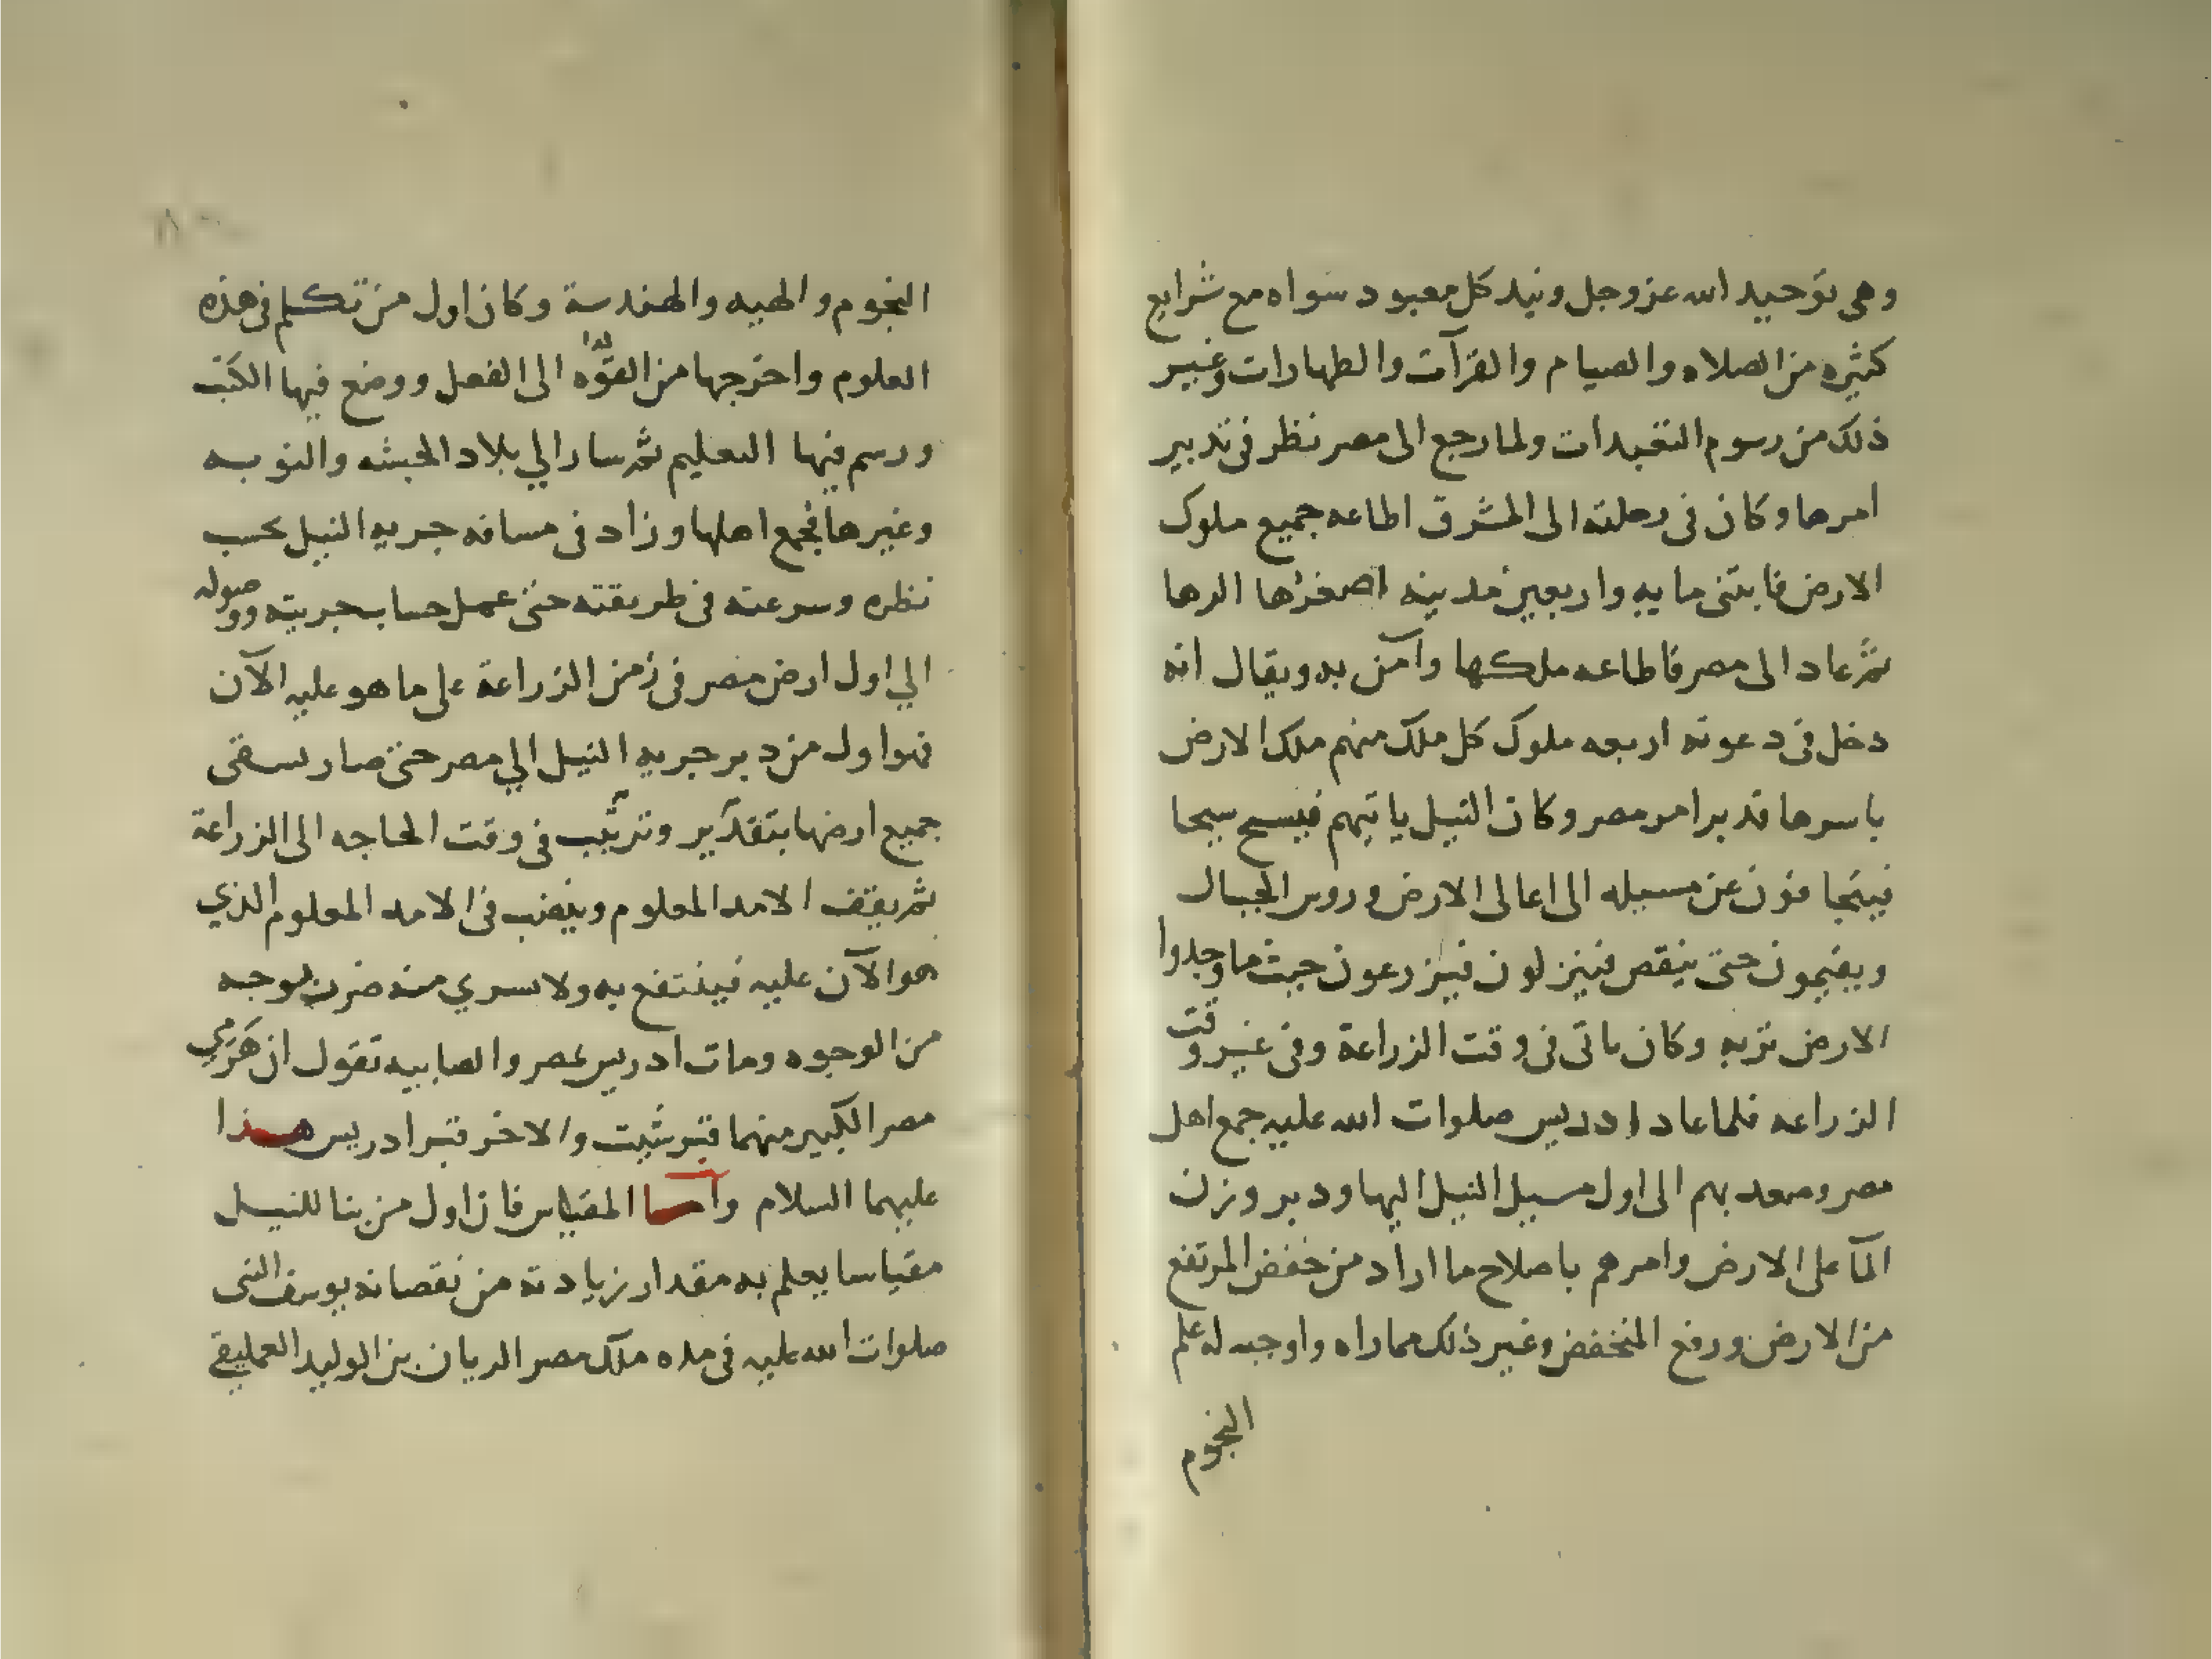 وهى توحيد الله عز وجل ونبد كل معبود سواه مع شرايع
كثيره من الصلاه والصيام والقرآت والطهارات وغير
ذلك من رسوم التعبدات ولما رجع الى مصر نظر فى تدبير
امرها وكان فى رحلته الى المشرق اطاعه جميع ملوك
الارض فابتنى مايه واربعين مدينه اصغرها الرها
ثم عاد الى مصر فاطاعه ملكها وآمن به ويقال انه
دخل فى دعوته اربعه ملوك كل ملك منهم ملك الارض
باسرها فدبر امر مصر وكان النيل ياتيهم فيسيح سيحا
فيتجافون عن مسيله الى اعالى الارض وروس الجبال
ويقيمون حتى ينقص فينزلون فيزرعون حيث ما وجدوا
الارض تربه وكان ياتى فى وقت الزراعة وفى غير وقت
الزراعه فلما عاد ادريس صلوات الله عليه جمع اهل
مصر وصعد بهم الى اول مسيل النيل اليها ودبر وزن
المآ على الارض وامرهم باصلاح ما اراد من خفض المرتفع
من الارض ورفع المنخفض وغير ذلك مما راه واوجبه له علم
النجوم
النجوم والهيه والهندسة وكان اول من تكلم فى هذه
العلوم واخرجها من القوّه الى الفعل ووضع فيها الكتب
ورسم فيها التعليم ثم سار الي بلاد الحبشه والنوبه
وغيرها فجمع اهلها وزاد فى مسافه جريه النيل بحسب
نظره وسرعته فى طريقته حتى عمل حساب جريته ووصوله
الي اول ارض مصر فى زمن الزراعة على ما هو عليه الآن
فهوا ول من دبر جريه النيل الي مصر حتى صار يسقى
جميع ارضها بتقدير وترتيب فى وقت الحاجه الى الزراعة
ثم يقف الامد المعلوم وينضب فى الامد المعلوم الذي
هو الآن عليه فينتفع به ولا يسري منه ضرر بوجه
من الوجوه ومات ادريس بمصر والصابيه تقول ان هرمي
مصر الكبير منهما قبر شيث والاخر قبر ادريس هذا
عليهما السلام واما المقياس فان اول من بنا للنيل
مقياسا يعلم به مقدار زيادته من نقصانه يوسف النبى
صلوات الله عليه فى مده ملك مصر الريان بن الوليد العمليقي